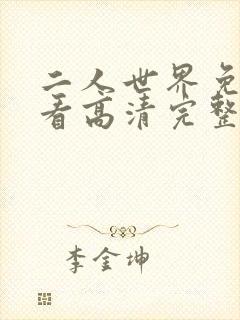 二人世界免
看高清完整
李金坤